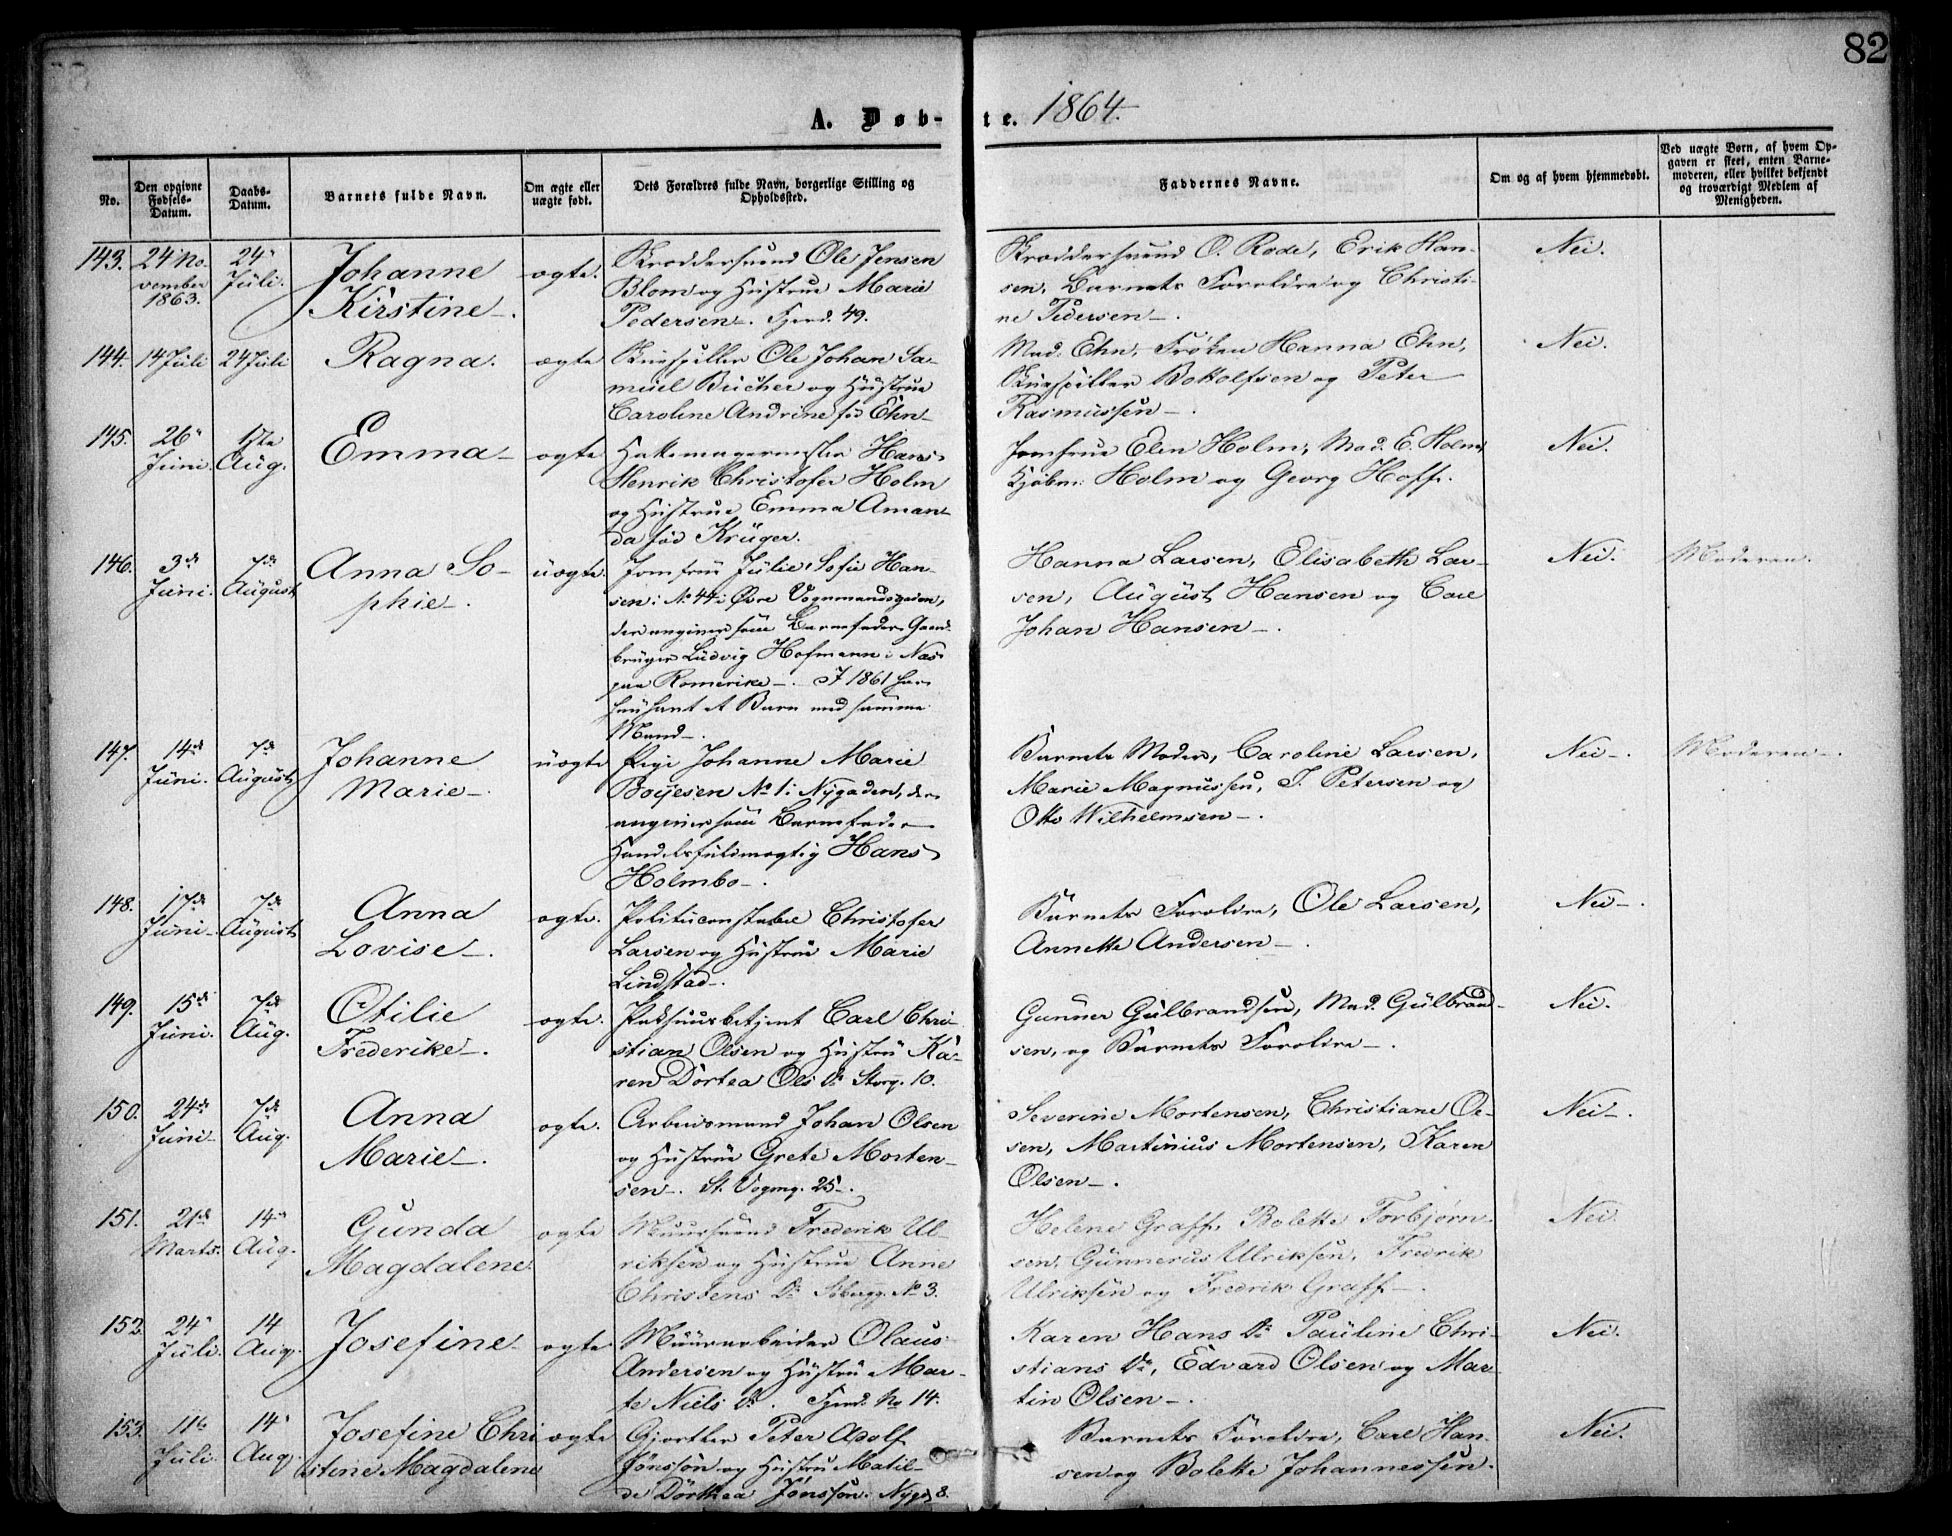 82
A. Døbte. 1864.
No.
Den opgivne Fødsels-Datum.
Daabs-Datum.
Barnets fulde Navn.
Om ægte eller uægte født.
Dets Forældres fulde Navn, borgerlige Stilling og Opholdssted.
Faddernes Navne.
Om og af hvem hjemmedøbt.
Ved uægte Børn, af hvem Opgaven er skeet, enten Barnemoderen, eller hvilket bekjendt og troværdigt Medlem af Menigheden.
143. 24 November 1863. 24 Juli. Johanne Kirstine. ægte.
Skræddersvend Ole Jensen
Blom og Hustrue Marie
Pedersen. Fjerd. 49.
Skræddersvend O. Rode, Erik Han-
sen, Barnets Forældre og Christi-
ne Pedersen.
Nei.
144. 14 Juli 24 Juli Ragna. ægte
Skuespiller Ole Johan Sa-
muel Bucher og Hustrue
Caroline Andrine fød Ehn
Mad. Ehn, Frøken Hanna Ehn,
Skuespiller Botolfsen og Peter
Rasmussen.
Nei.
145. 26 Juni. Aug. Emma ægte
Hattemagermester Hans
Henrik Christofer Holm
og Hustrue Emma Aman-
da fød Krüger.
Jomfrue Elen Holm, Mad. E. Holm,
Kjøbm: Holm og Georg Hoff.
Nei.
146. 3de Juni. 7de August Anna Sophie. uægte.
Jomfru Julie Sofie Han-
sen i No 44 i Øvre Vognmandsgaden,
der angiver som Barnefader Gaard-
bruger Ludvig Hofmann i Næs
paa Romerike. I 1861 har
hun havt et Barn med samme
Mand.
Hanna Larsen, Elisabeth Lar-
sen, August Hansen og Carl
Johan Hansen.
Nei. Moderen.
147. 14de Juni. 7de August Johanne Marie. uægte
Pige Johanne Marie
Boyesen No 1 i Nygaden, der
angiver som Barnefader
Handelsfuldmægtig Hans
Holmbo.
Barnets Moder, Caroline Larsen,
Marie Magnussen, J. Petersen og
Otto Wilhelmsen.
Nei. Moderen.
148. 17de Juni 7de August Anna Lovise. ægte.
Politiconstabel Christofer
Larsen og Hustrue Marie
Lindstad.
Barnets Forældre, Ole Larsen,
Annette Andersen.
Nei.
149. 15de Juni. 7de Aug. Otilie Frederike. ægte.
Pakhuusbetjent Carl Chri-
stian Olsen og Hustru Ka-
ren Dortea Ols Dr. Storg. 10.
Gunner Gulbrandsen, Mad. Gulbrand-
sen, og Barnets Forældre.
Nei.
150. 24de Juni 7de Aug. Anna Marie. ægte.
Arbeidsmand Johan Olsen
og Hustrue Grete Morten-
sen. St. Vogmg. 25.
Severine Mortensen, Christiane Ol-
sen, Martinius Mortensen, Karen
Olsen.
Nei.
151. 21de Marts. 14 Aug. Gunda Magdalene. ægte
Muursvend Frederik Ul-
riksen og Hustrue Anne
Christens Dr. No 3.
Helene Graff, Bolette Torbjørn-
sen, Gunnerus Ulriksen, Fredrik
Ulriksen og Fredrik Graff.
Nei.
152. 24 Juli. 14 Aug. Josefine ægte
Muurarbeider Olaus
Andersen og Hustru Mar-
te Niels Dr. Fjerd. No 14.
Karen Hans Dr. Pauline Chri-
stians Dr., Edvard Olsen og Mar-
tin Olsen.
Nei.
153. 11te Juli 14 Aug. Josefine Christine Magdalene ægte
Gjørtler Peter Adolf
Jønsson og Hustru Matil-
de Dorthea Jønsson. Nygd 8.
Barnets Forældre, Carl Han-
sen og Bolette Johannessen.
Nei.